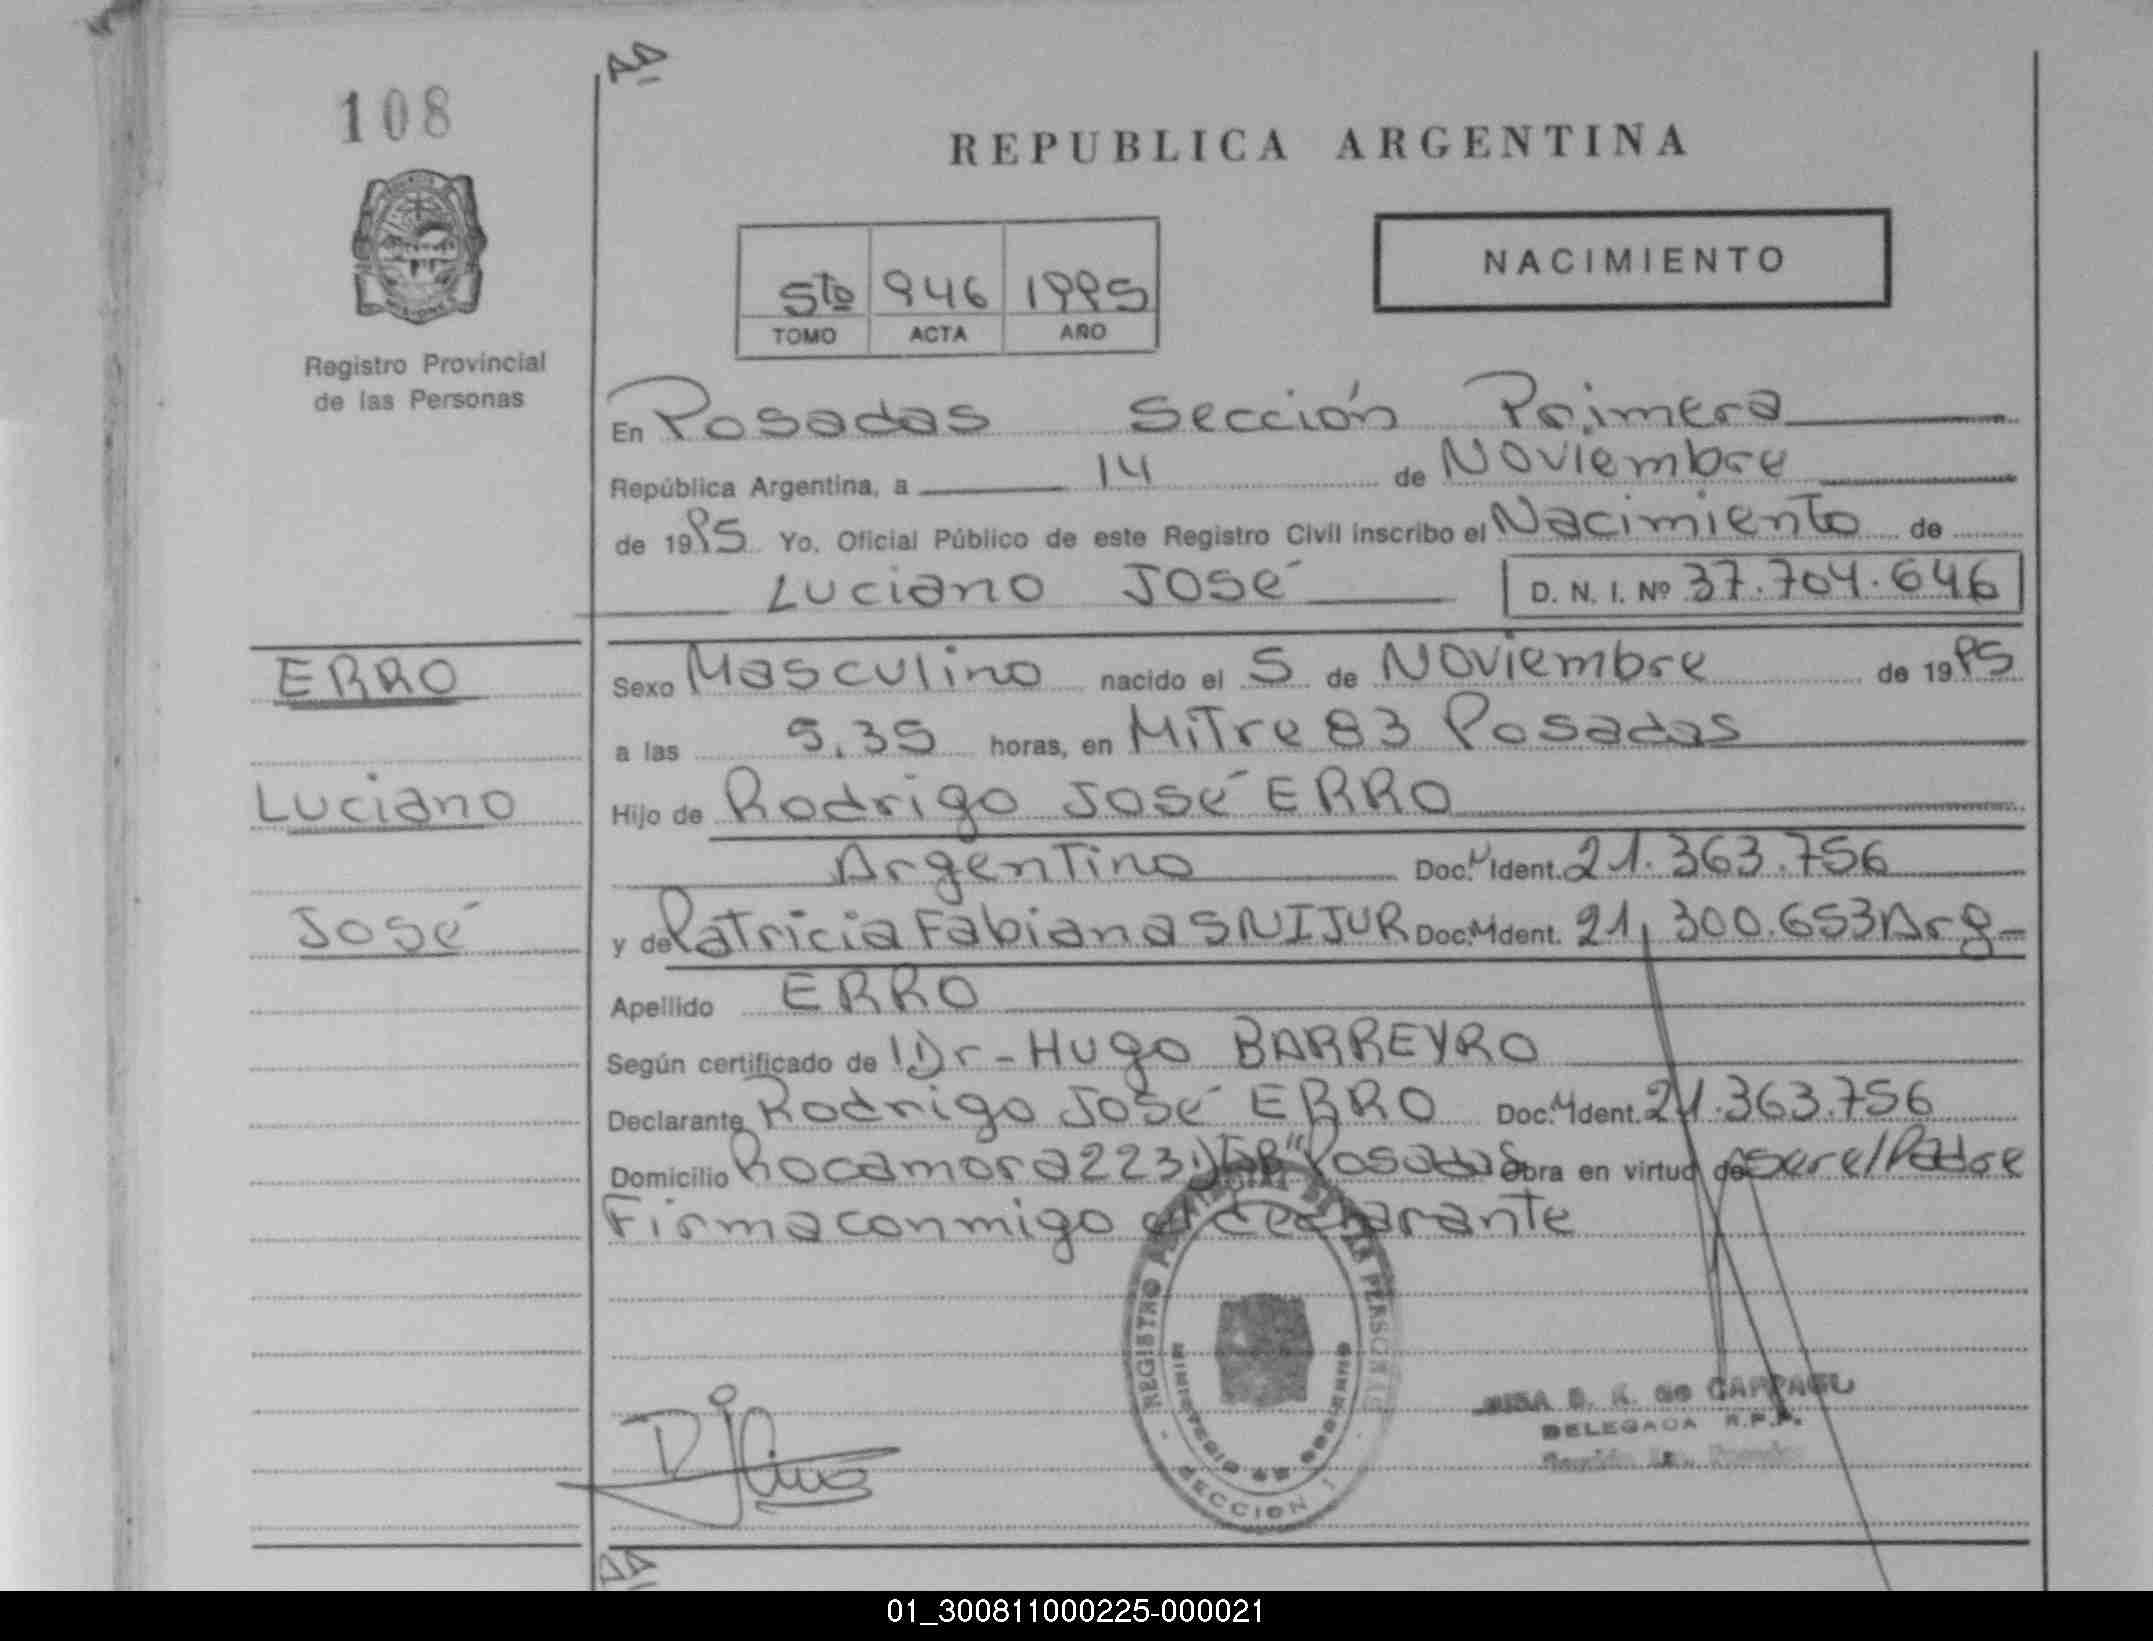 108
REPUBLICA ARGENTINA
NACIMIENTO
5to 946 1995
TOMO ACTA AÑO
Registro Provincial
de las Personas
En Posadas Sección Primera
República Argentina, a 14 de Noviembre
de 1995 Yo, Oficial Público de este Registro Civil inscribo el Nacimiento de
Luciano José D. N. I. Nº 37.704.646
ERRO
Luciano
José
Sexo Masculino nacido el 5 de Noviembre de 1995
a las 5.35 horas, en Mitre 83 Posadas
Hijo de Rodrigo José ERRO
Argentino Doc. Ident. 21.363.756
y de Patricia Fabiana SNIJUR Doc. Ident. 21.300.653 Arg-
Apellido ERRO
Según certificado de Dr- Hugo BARREYRO
Declarante Rodrigo José ERRO Doc. Ident. 21.363.756
Domicilio Rocamora 223 Posadas Obra en virtud de ser el Padre
Firma conmigo el declarante
REGISTRO PROVINCIAL DE LAS PERSONAS
MINISTERIO DE GOBIERNO
SECCION 1
DELEGADA R.P.P.
01_300811000225-000021